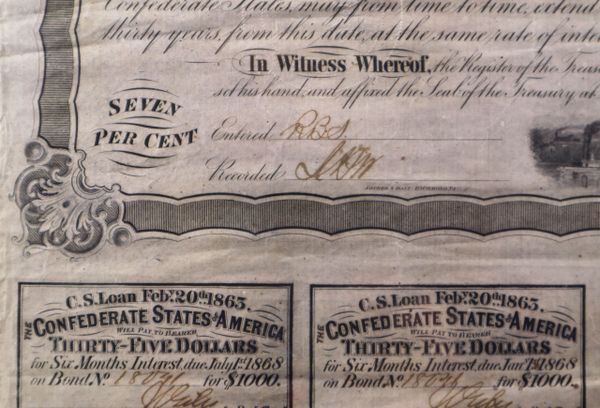 Confederate States, may from time to time, extend
thirty years, from this date, at the same rate of inte
In Witness Whereof, the Register of the Treas
set his hand, and affixed the Seal of the Treasury at
SEVEN
PER CENT
Entered RBS
Recorded
ARCHER & DALY, RICHMOND, VA.
C.S. Loan Feby. 20th. 1863.
THE CONFEDERATE STATES OF AMERICA
WILL PAY TO BEARER
THIRTY-FIVE DOLLARS
for Six Months Interest, due July 1st 1868
on Bond No. 18076 for $1000.
C.S. Loan Feby. 20th. 1863.
THE CONFEDERATE STATES OF AMERICA
WILL PAY TO BEARER
THIRTY-FIVE DOLLARS
for Six Months Interest, due Jany 1st 1868
on Bond No. 18076 for $1000.